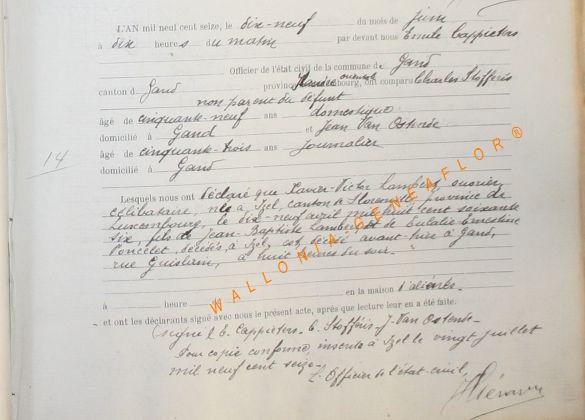 L'AN mil neuf cent seize, le dix-neuf du mois de juin
à dix heures du matin par devant nous Emile Cappieters
Officier de l'état civil de la commune de Gand
canton de Gand province Flandre orientale bourg, ont comparu Charles Stofféris
non parent du défunt
âgé de cinquante-neuf ans domestique
domicilié à Gand et Jean Van Ostende
âgé de cinquante-trois ans journalier
domicilié à Gand
14
Lesquels nous ont déclaré que Xavier-Victor Lambert, ouvrier
célibataire, né à Izel, canton de Florenville, province de
Luxembourg, le dix-neuf avril mil huit cent soixante
six, fils de Jean-Baptiste Lambert et de Eulalie Ernestine
Poncelet, décédés à Izel, est décédé avant-hier à Gand,
rue Guislain, à huit heures du soir.
à heure en la maison d'aliénés.
et ont les déclarants signé avec nous le présent acte, après que lecture leur en a été faite.
(signé) E. Cappieters - C. Stofféris - J. Van Ostende -
Pour copie conforme inscrite à Izel le vingt juillet
mil neuf cent seize.
L'Officier de l'état civil,
WALLONIA-GENEAFLOR ®